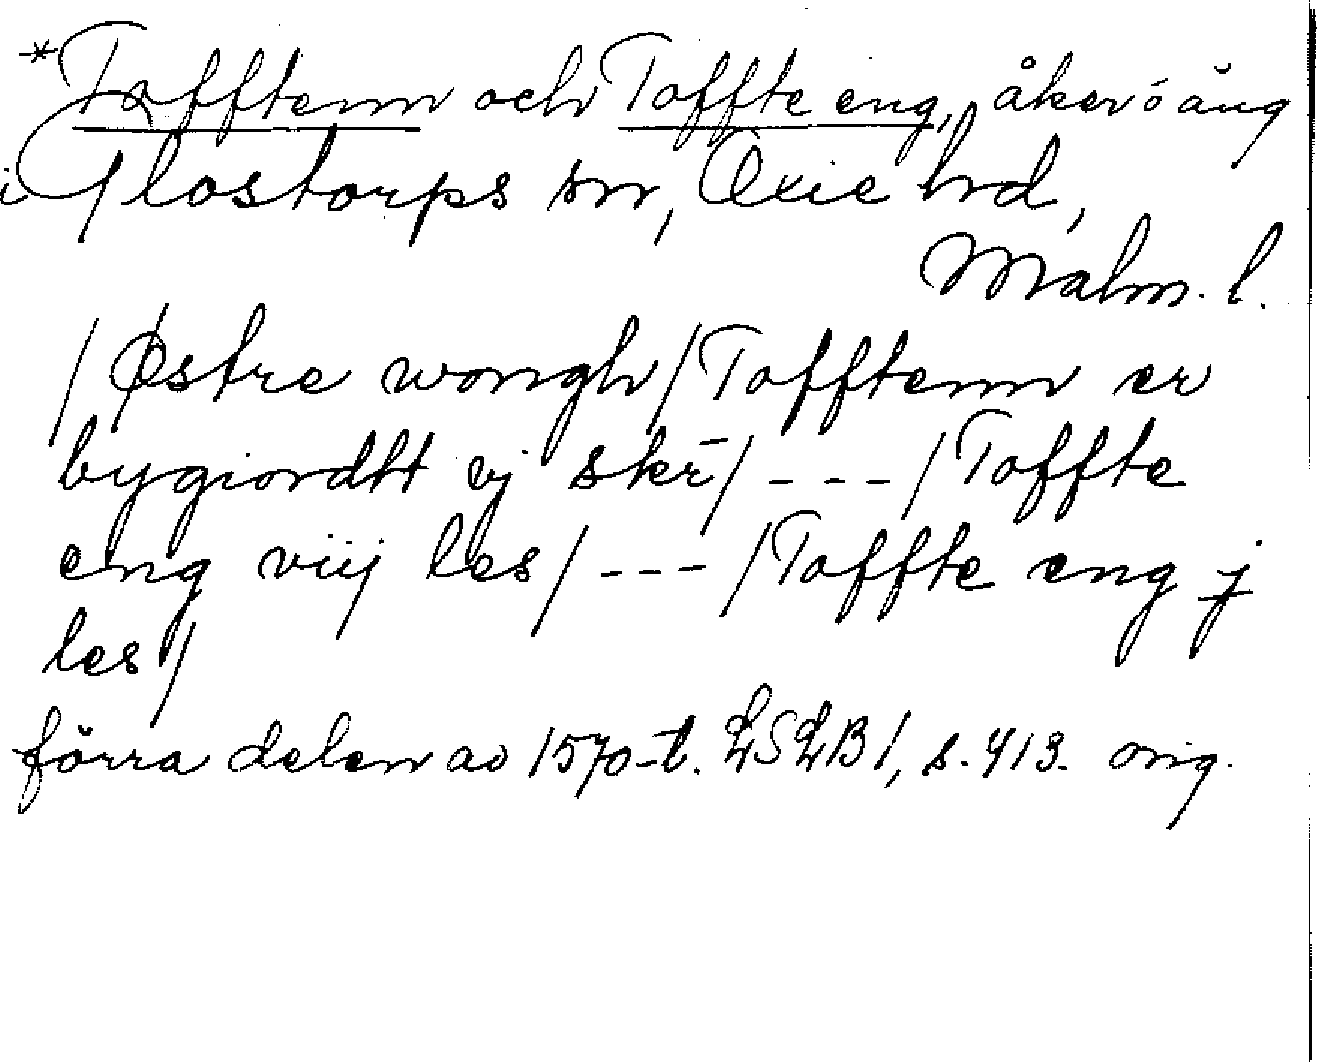 *Tofftenn och Toffte eng, åker ó äng
i Glostorps sn, Oxie hrd,
Malm. l.
/Østre wongh/Tofftenn er
bygiordtt vj skr̄/ - - - /Toffte
eng viij les/ - - - /Toffte eng j
les/
förra delen av 1570-t. LSLB 1, s. 413. orig.